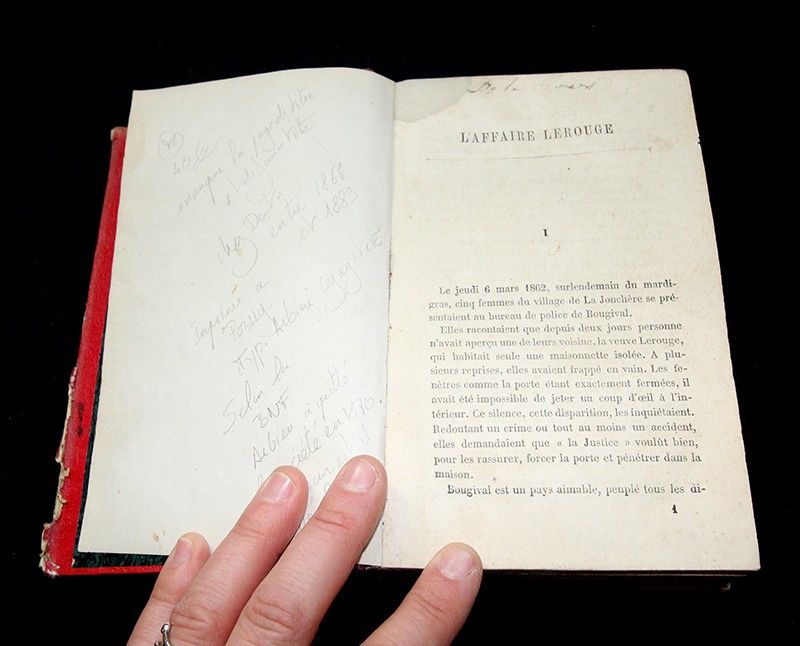 40 €
manque la page de titre
et de faux titre
chez Dentu
entre 1866
et 1883
Imprimé à
Poissy
TYP. Arbieu
Selon la
BNF
Arbieu a quitté
en 1870
L'AFFAIRE LEROUGE
I
Le jeudi 6 mars 1862, surlendemain du mardi-
gras, cinq femmes du village de La Jonchère se pré-
sentaient au bureau de police de Bougival.
Elles racontaient que depuis deux jours personne
n'avait aperçu une de leurs voisine, la veuve Lerouge,
qui habitait seule une maisonnette isolée. A plu-
sieurs reprises, elles avaient frappé en vain. Les fe-
nêtres comme la porte étant exactement fermées, il
avait été impossible de jeter un coup d'œil à l'in-
térieur. Ce silence, cette disparition, les inquiétaient.
Redoutant un crime ou tout au moins un accident,
elles demandaient que « la Justice » voulût bien,
pour les rassurer, forcer la porte et pénétrer dans la
maison.
Bougival est un pays aimable, peuplé tous les di-
1